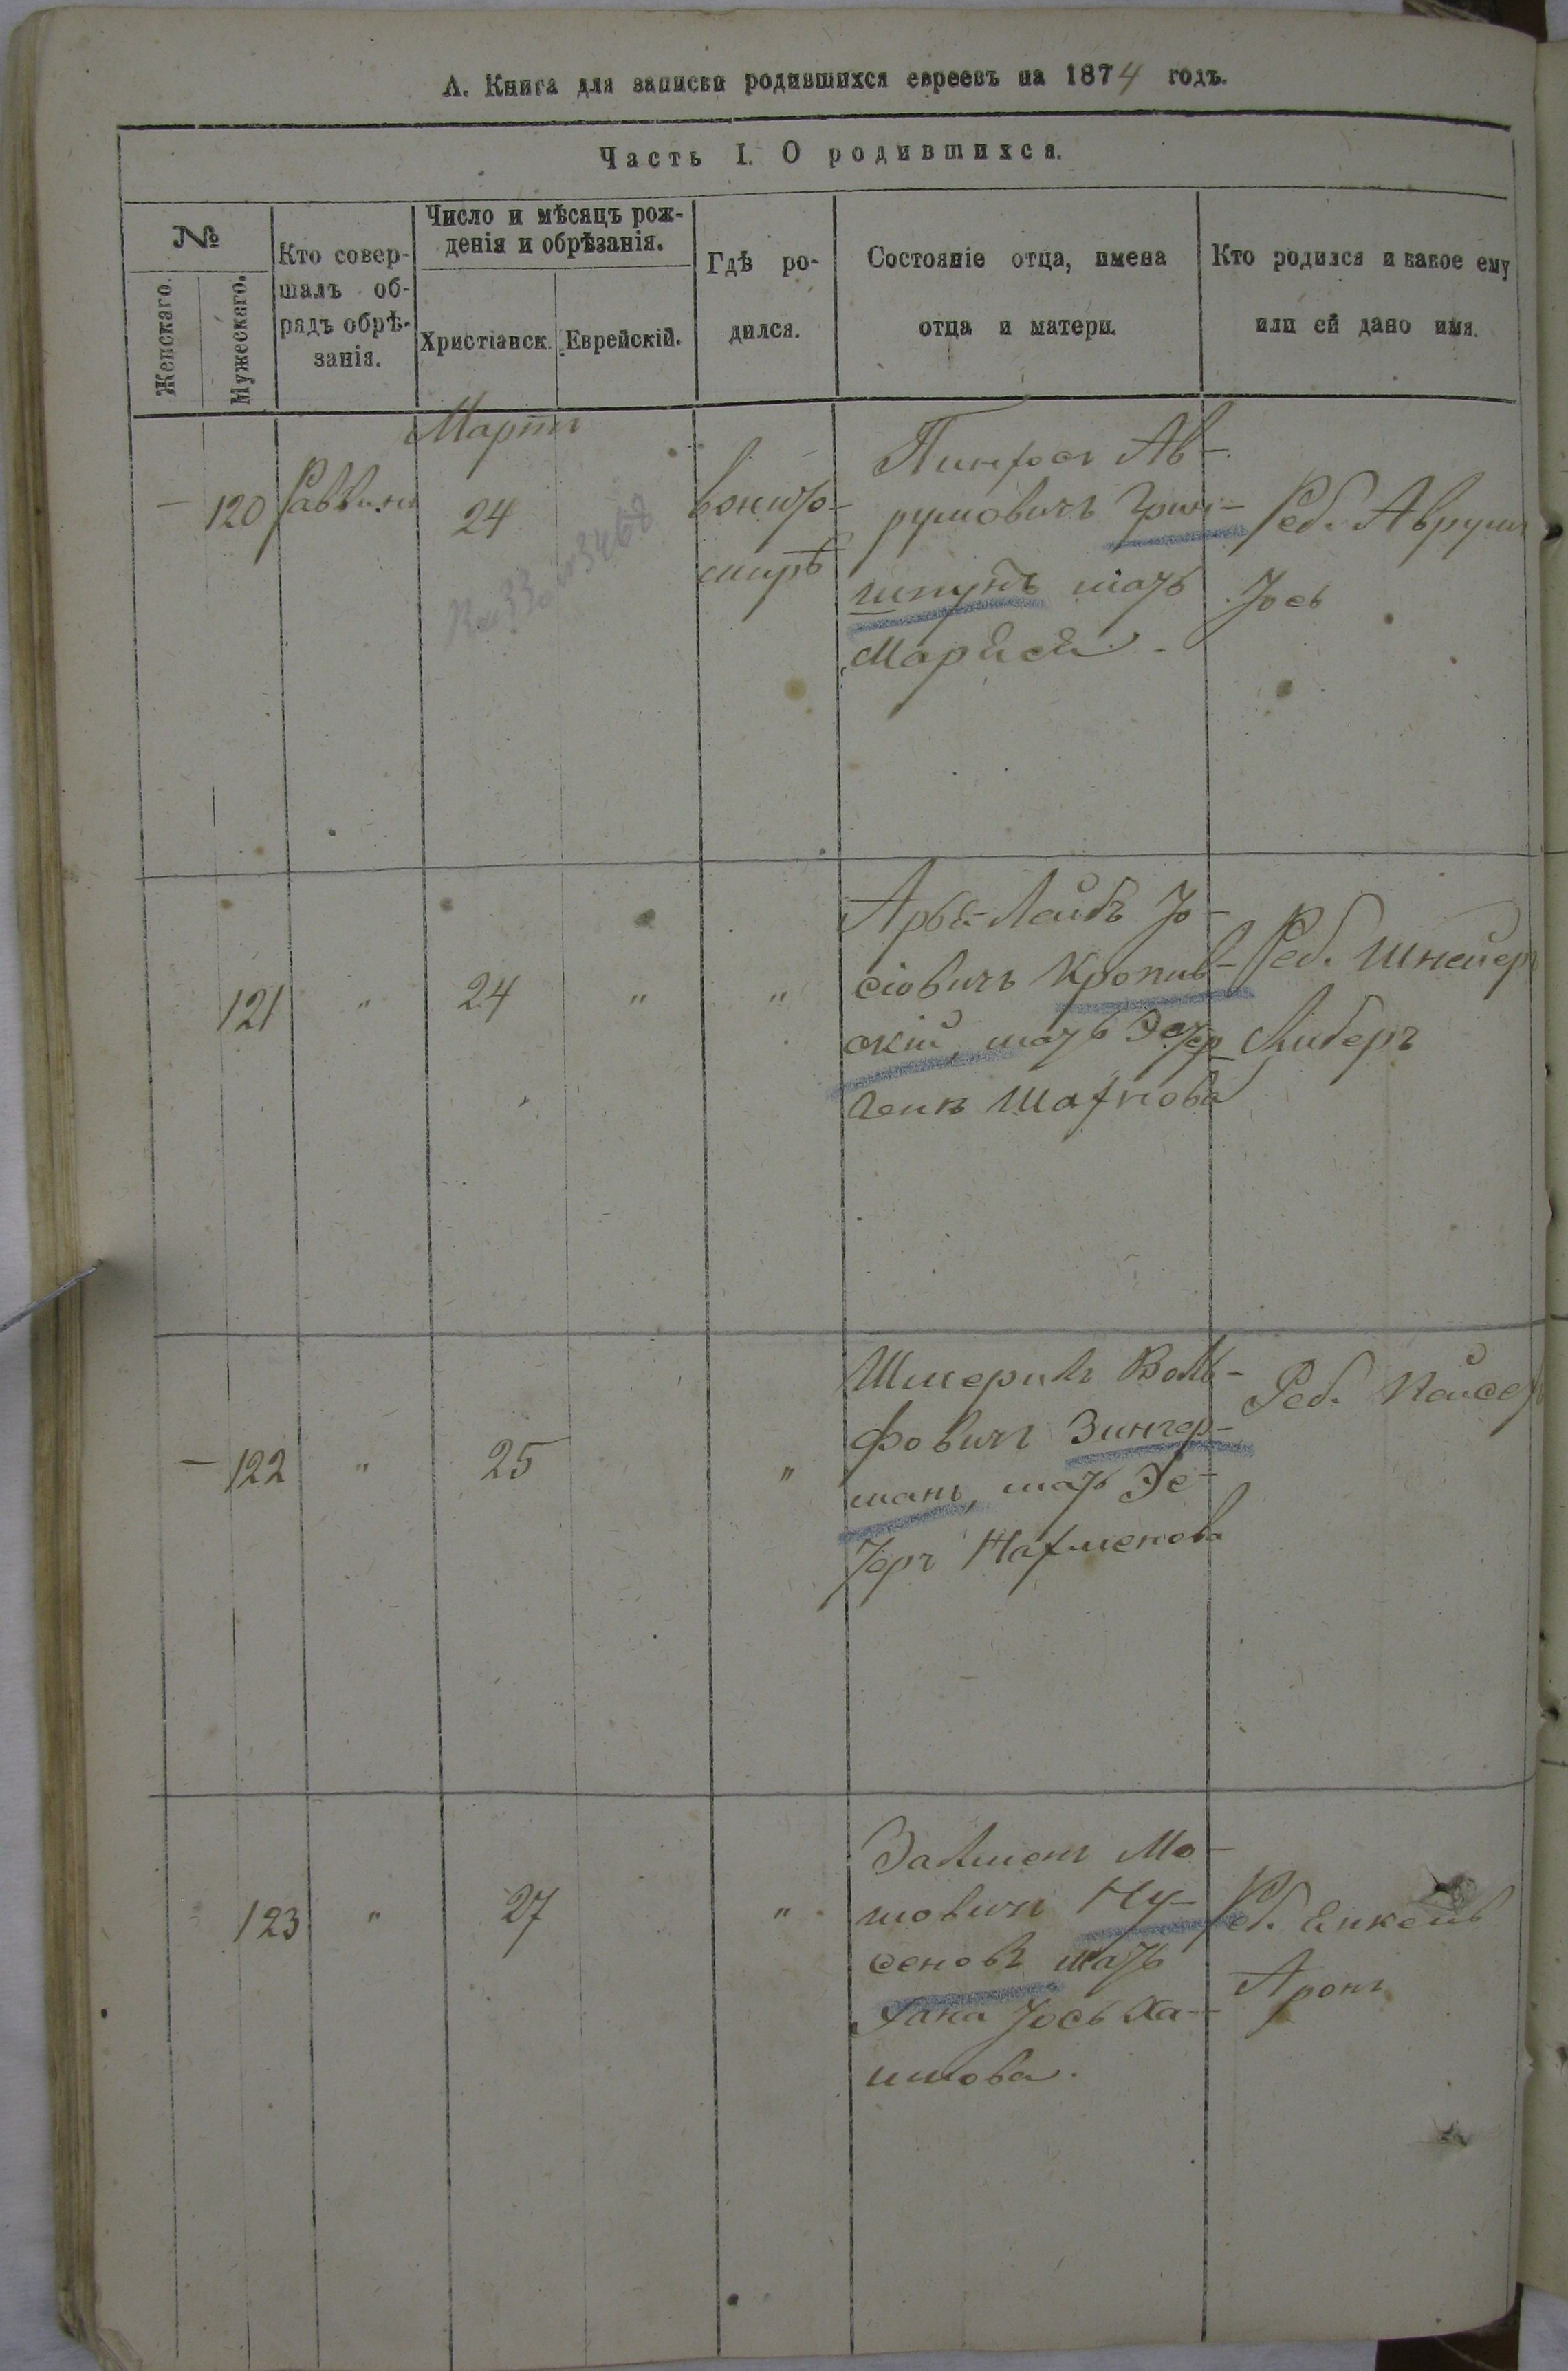 А. Книга для записки родившихся евреевъ на 1874 годъ.
Часть I. О родившихся.
№
Женскаго.
Мужескаго.
Кто совер-
шалъ об-
рядъ обрѣ-
занія.
Число и мѣсяцъ рож-
денія и обрѣзанія.
Христіанск.
Еврейскій.
Гдѣ ро-
дился.
Состояніе отца, имена
отца и матери.
Кто родился и какое ему
или ей дано имя.
Мартъ
— 120
Раввинъ
24
вжито-
мирѣ
Пинхосъ Ав-
румовичъ Грин-
шпунъ мать
Марьей
Реб. Аврумъ
Іось
121
"
24
"
"
Арья-Лейбъ Іо-
сіовичъ Кропив-
скій, мать Эстер
Шахнова
Реб. Шнейер
Либеръ
— 122
"
25
"
Шмерилъ Воль-
фовичъ Зингер-
манъ, мать Эс-
теръ Нахменова
Реб.
123
"
27
"
Залменъ Мо-
шовичъ Ну-
сеновъ мать
Хана Іось Ха-
имова.
Реб.
Аронъ